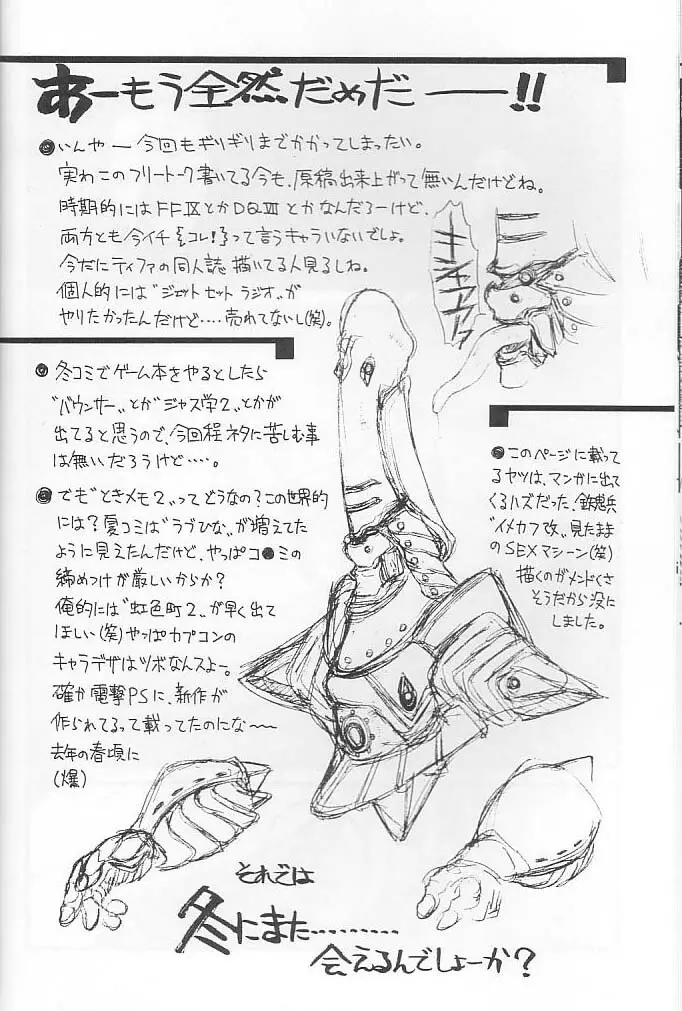 あーもう全然だめだ――!!
●いんやー今回もギリギリまでかかってしまったい。
実わこのフリートーク書いてる今も、原稿出来上がって無いんだけどね。
時期的にはFFⅨとかDQⅦとかなんだろーけど、
両方とも今イチ{コレ!}って言うキャラいないでしょ。
今だにティファの同人誌描いてる人見るしね。
個人的には"ジェットセットラジオ"が
やりたかったんだけど‥‥売れてないし(笑)。
●冬コミでゲーム本をやるとしたら
"バウンサー"とか"ジャス学2"とかが
出てると思うので、今回程ネタに苦しむ事
は無いだろうけど‥‥。
●でも"ときメモ2"ってどうなの?この世界的
には?夏コミは"ラブひな"が増えてた
ように見えたんだけど、やっぱコ●ミの
締めつけが厳しいからか?
俺的には"虹色町2"が早く出て
ほしい(笑)やっぱカプコンの
キャラデザはツボなんスよー。
確か電撃PSに、新作が
作られてるって載ってたのにな〜〜
去年の春頃に
(爆)
●このページに載って
るヤツは、マンガに出て
くるハズだった、鉄騎兵
"イメカフ改"見たまま
のSEXマシーン(笑)
描くのがメンドくさ
そうだから没に
しました。
それでは
冬にまた‥‥‥‥‥
会えるんでしょーか?